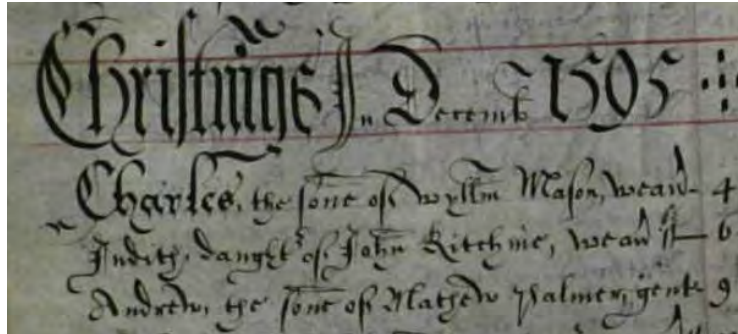 Christninge In Decemb 1595
Charles, the sone of wyllm Mason, weav. 4
Judith, daught of John Kitchine, weav 6
Andrew, the sone of Mathew Palmer, gent. 9